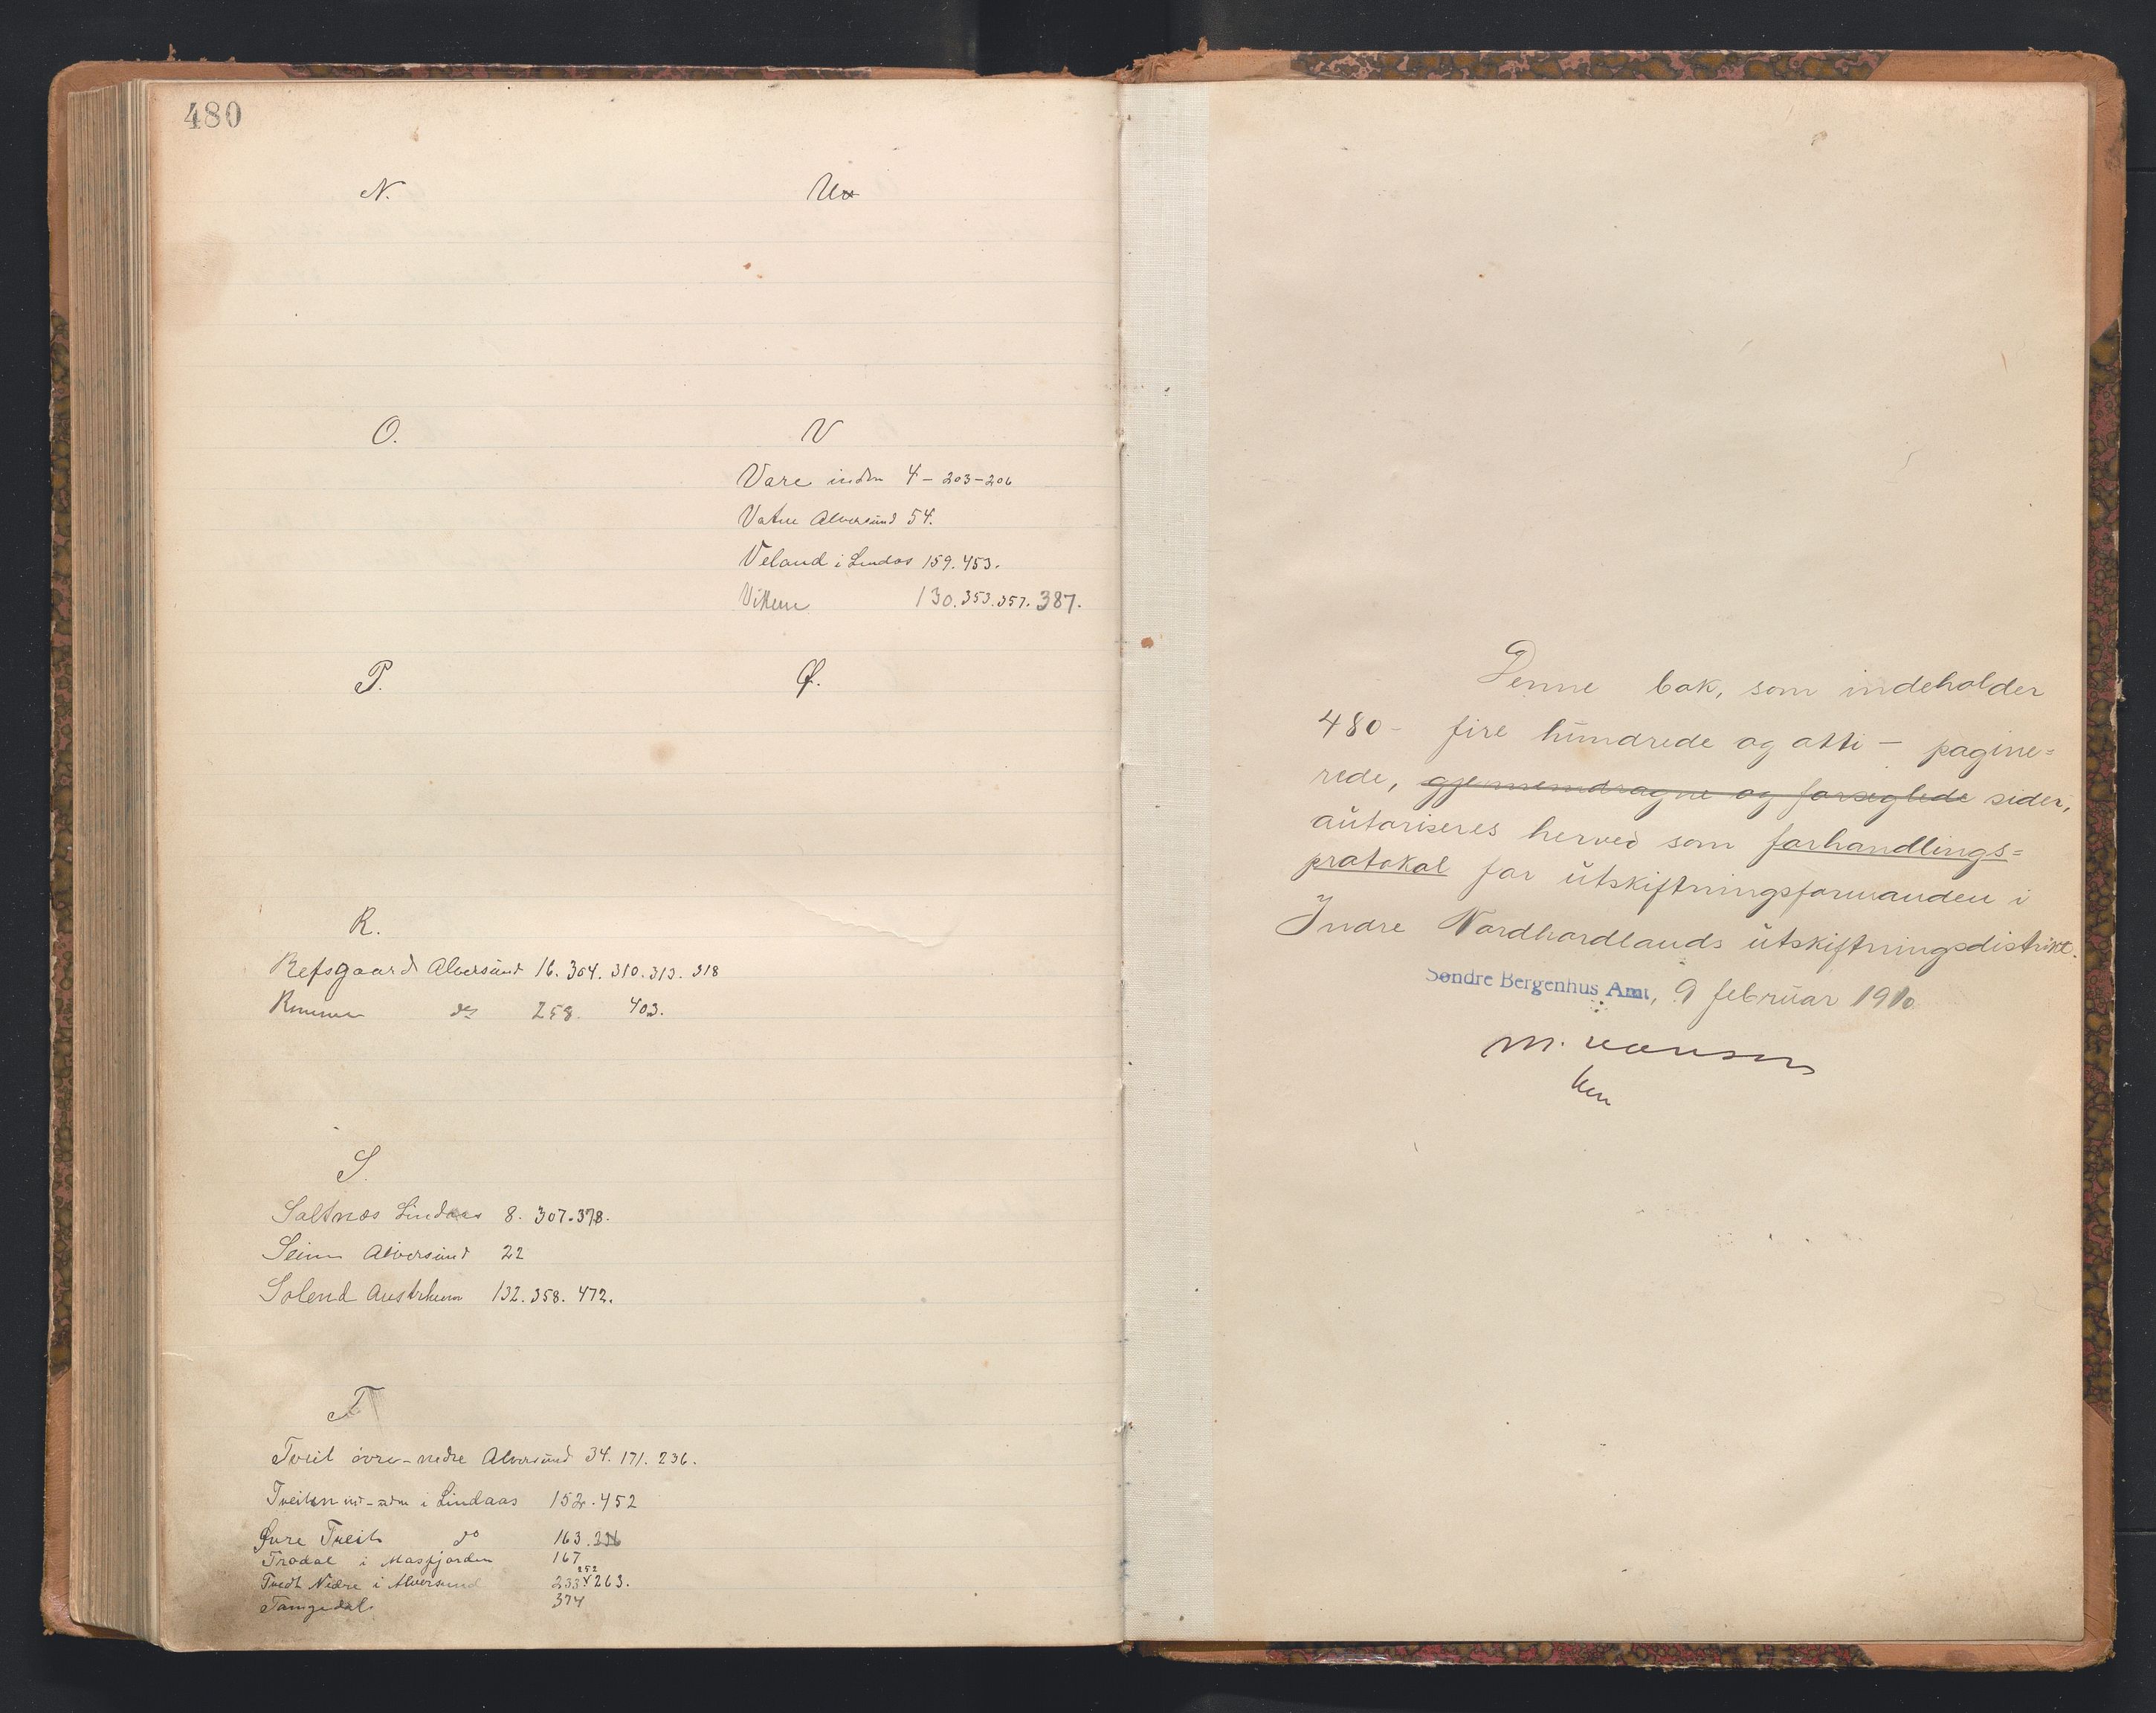 480
N.
O.
P.
R.
Refsgaard Alversund 16. 304. 310. 313. 318
258. 403.
S.
Saltnes Lindaas 8. 307. 378.
Seim Alversund 22
Solend Austrheim 132. 358. 472.
T
Tveit övre-nedre Alversund 34. 171. 236.
Tveiten i Lindaas 152. 452
Øvre Tveit do 163.
Trodal i Masfjorden 167
Tvedt Nedre i Alversund 233 252 263.
374
U
V
Vare indre 4 - 203-206
Vatne Alversund 54.
Veland i Lindas 159. 453.
130. 353. 357. 387.
Ø.
Denne bok, som indeholder
480 - fire hundrede og otti - pagine=
rede, gjennemdragne og forseglede sider,
autoriseres herved som forhandlings=
protokol for utskiftningsformanden i
Indre Nordhordlands utskiftningsdistrikt.
Søndre Bergenhus Amt, 9 februar 1910
M.